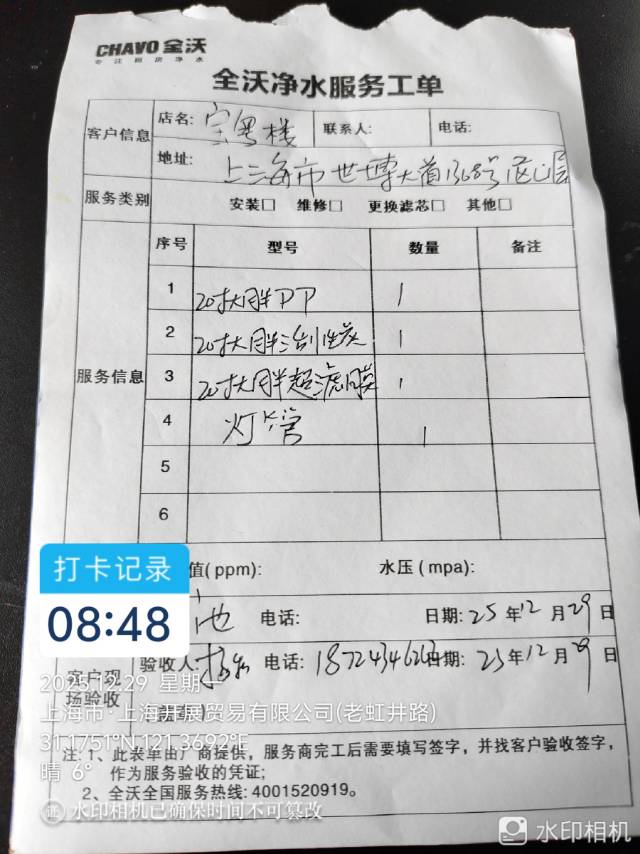 CHAVO 全沃
专注厨房净水
全沃净水服务工单
客户信息
店名: 宝粤楼
联系人:
电话:
地址: 上海市世博大道1368号
服务类别
安装□ 维修□ 更换滤芯□ 其他□
服务信息
序号 型号 数量 备注
1 20寸大胖PP 1
2 20寸大胖活性炭 1
3 20寸大胖超滤膜 1
4 灯管 1
5
6
值(ppm): 水压(mpa):
电话: 日期: 25年12月29日
客户现场验收
验收人 电话: 日期: 25年12月29日
打卡记录
08:48
2025.12.29 星期一
上海市·上海开展贸易有限公司(老虹井路)
31.1751°N,121.3692°E
晴 6°
注: 1、此表单由厂商提供，服务商完工后需要填写签字，并找客户验收签字，
作为服务验收的凭证;
2、全沃全国服务热线: 4001520919。
证 水印相机已确保时间不可篡改
水印相机